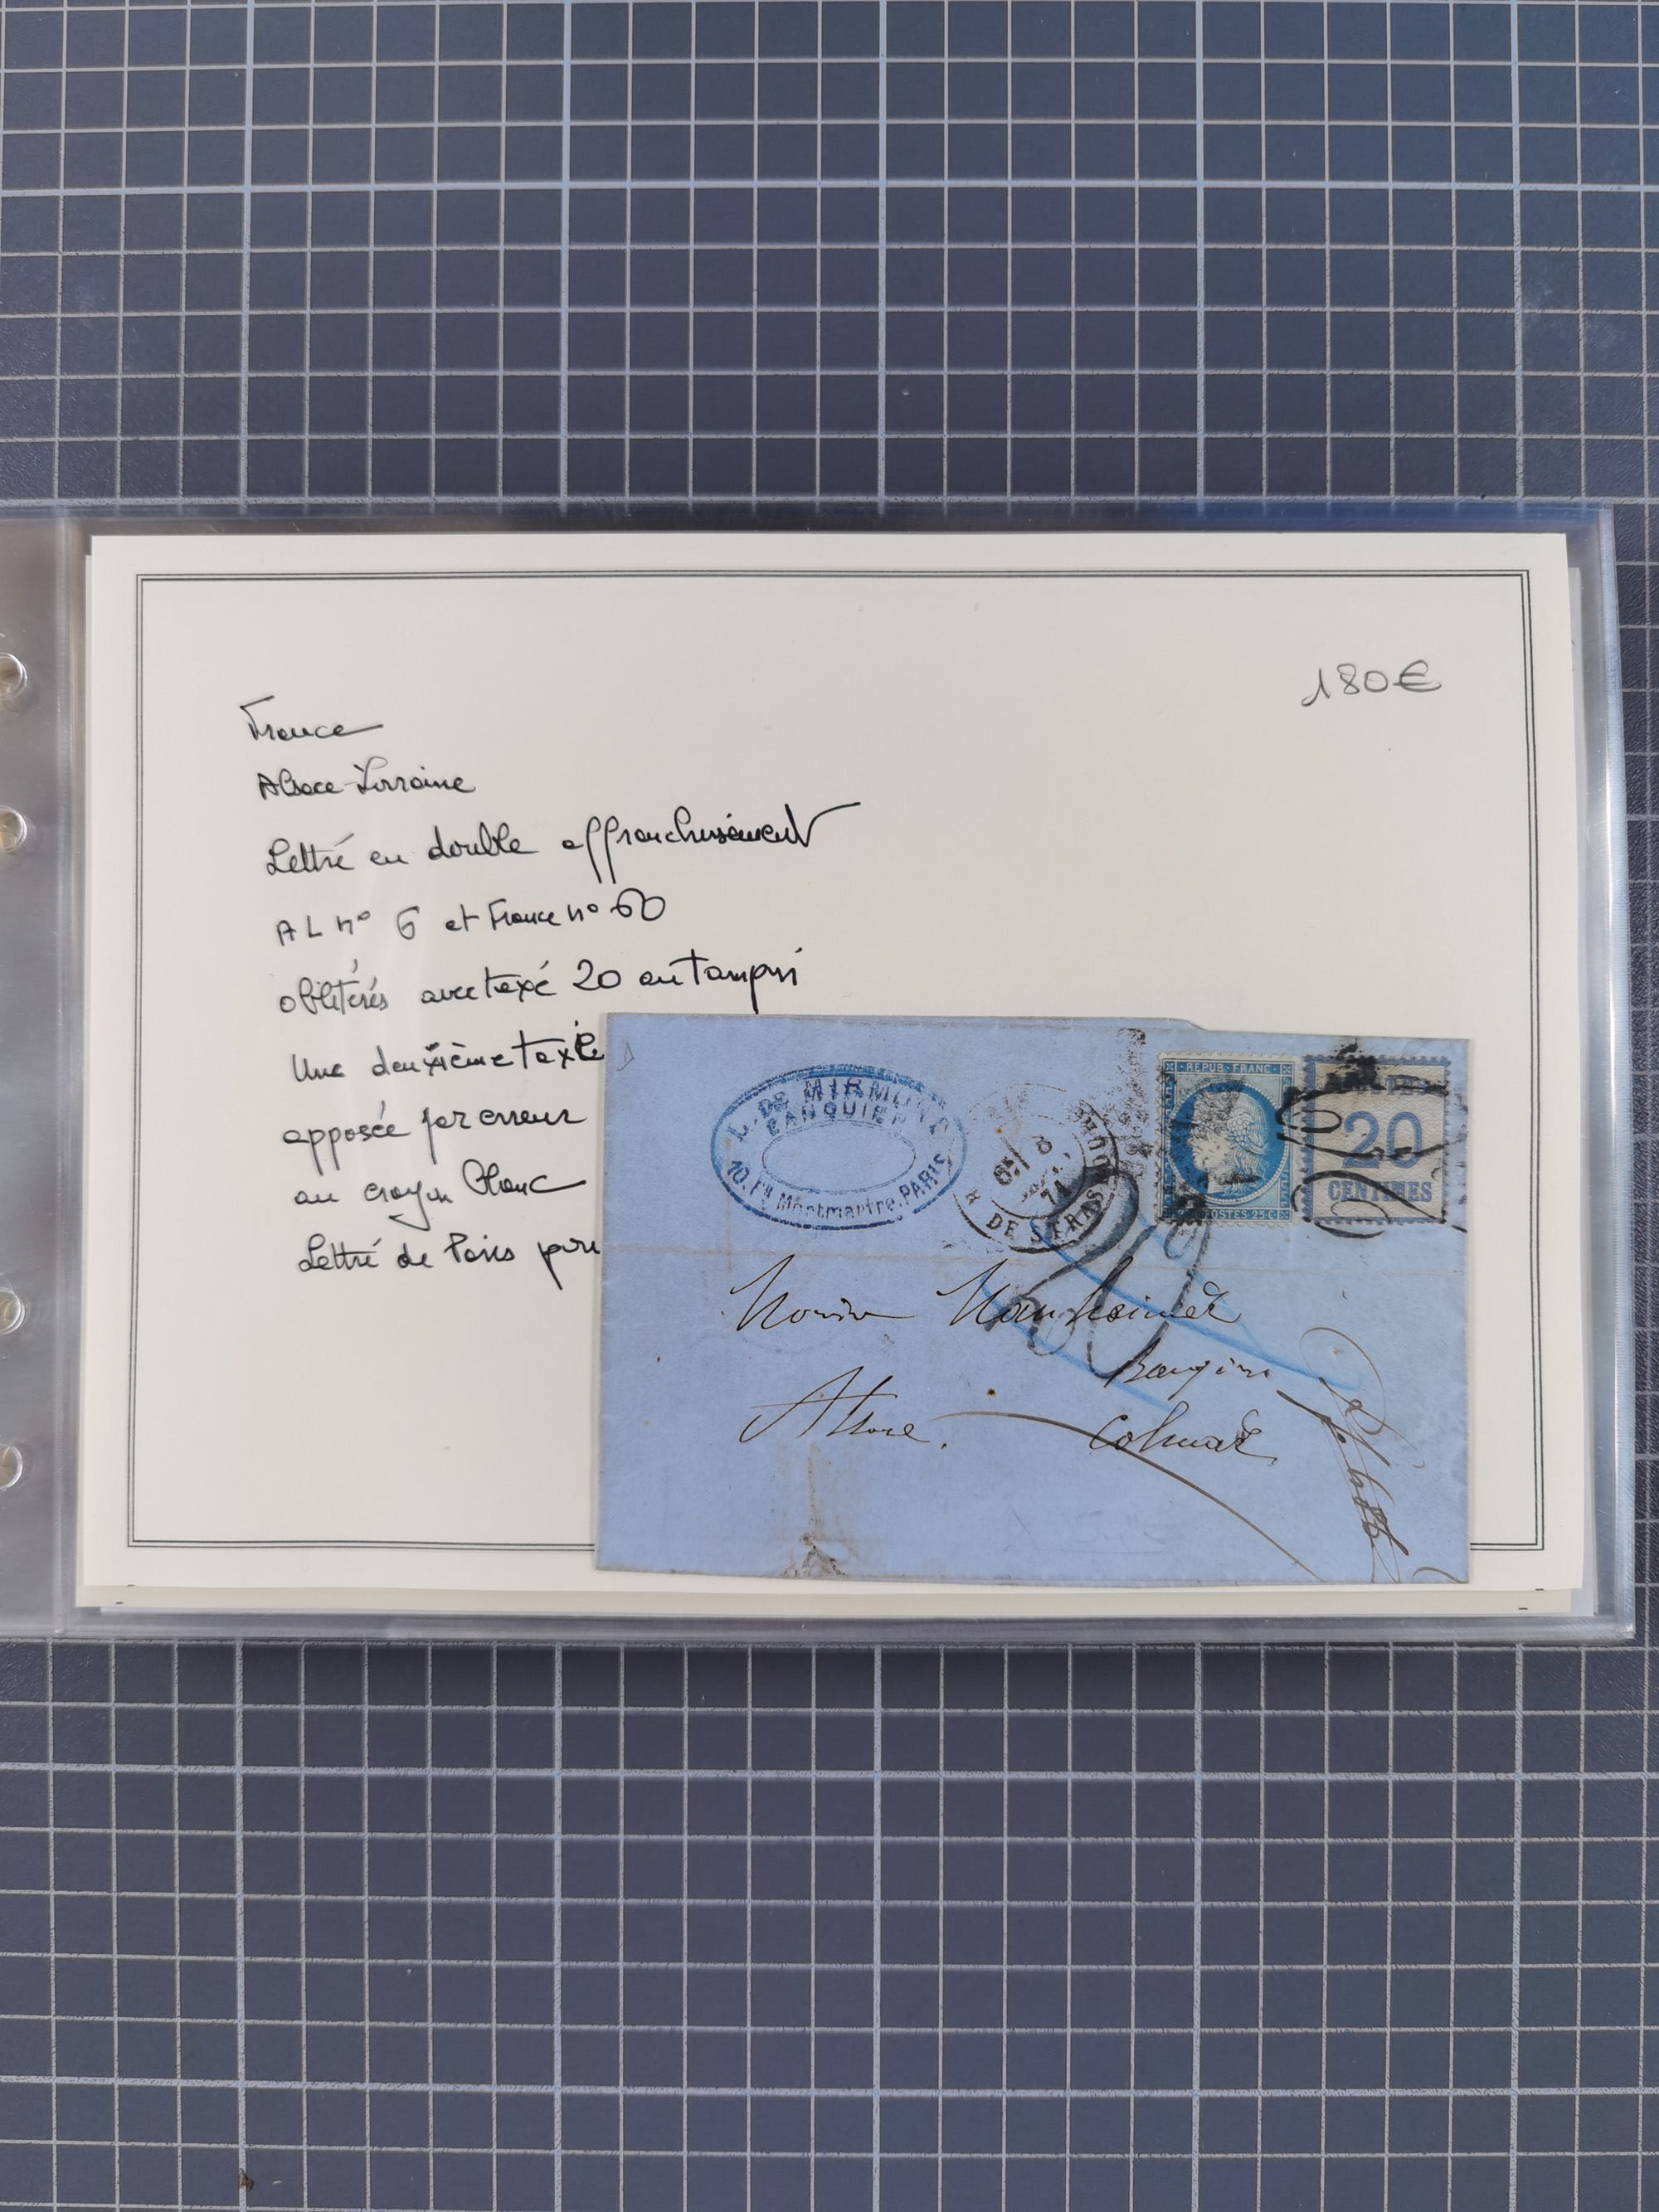 180€
France
Alsace-Lorraine
Lettre en double affranchissement
AL n° 6 et France n° 60
oblitérés avec taxe 20 au tampon
Une deuxième taxe
apposée par erreur
au crayon blanc
Lettre de Paris pour
L. DE MIRMONT
BANQUIER
10, Fg Montmartre, PARIS
DE STRASB
REPUB. FRANC.
POSTES 25 C
POSTES
20
CENTIMES
20
20
Manheimer
Alsace. Colmar